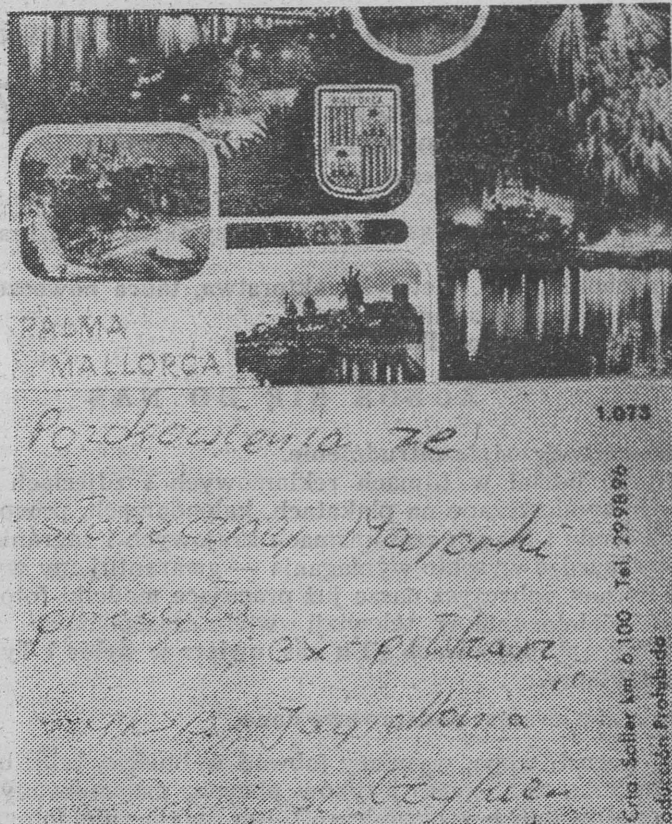 MALLORCA
PALMA
MALLORCA
1.073
Pozdrowienia ze
słonecznej Majorki
przesyła
ex-piłkarz
Jagiellonia
Crta. Soller km. 6.100 Tel. 299896
Prohibida